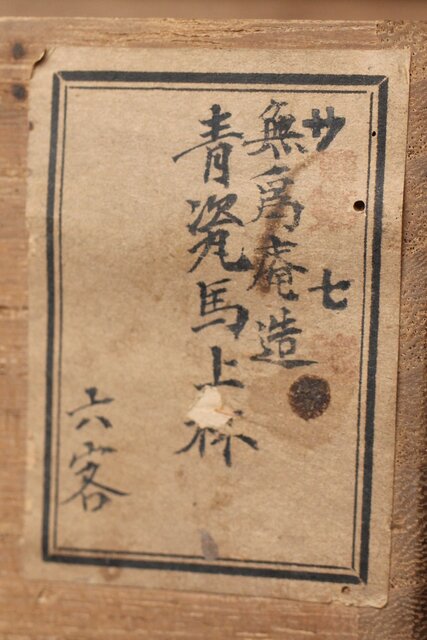 サ七
無為庵造
青瓷馬上杯
六客